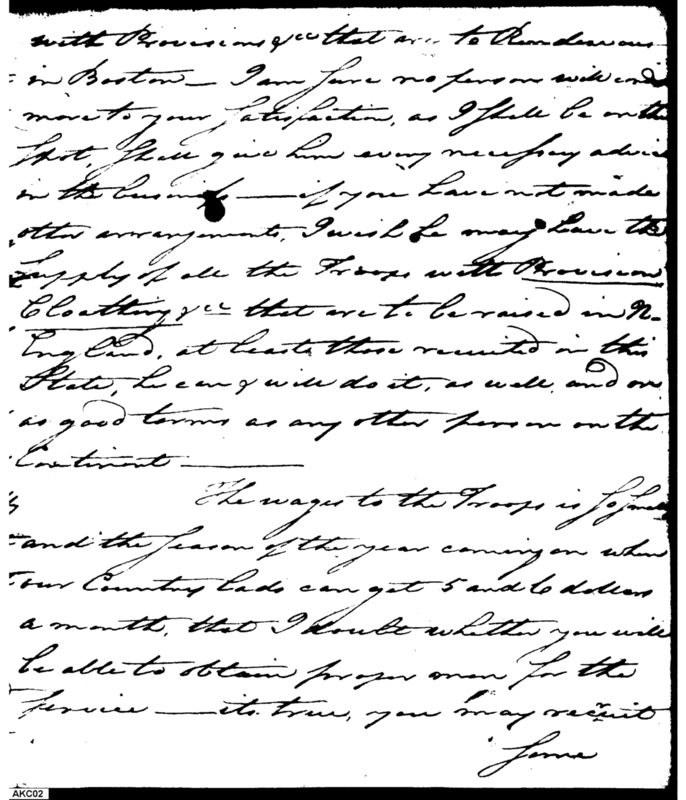 with Provisions &cc that are to Rendezvous
in Boston — I am sure no person will
more to your satisfaction, as I shall be on the
spot, shall give him every necessary advice
in the business — if you have not made
other arrangements, I wish he may have the
Supply of all the Troops with Provision
Cloathing &cc that are to be raised in N-
England, at least those recruited in this
State, he can & will do it, as well and on
as good terms as any other person on the
Continent —
The wages to the Troops is so small
and the season of the year coming on when
our Country lads can get 5 and 6 dollars
a month, that I doubt whether you will
be able to obtain proper men for the
service — its true, you may recruit
some
AKC02